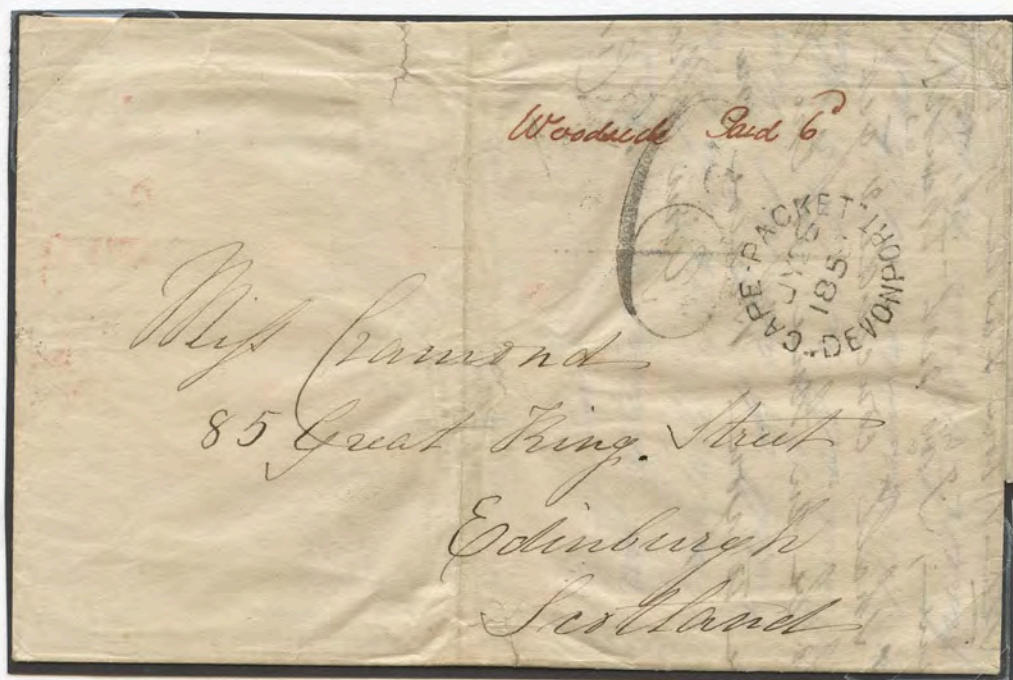 Woodside Paid 6d
6
CAPE-PACKET-DEVONPORT
185
Miss Cramond
85 Great King. Street
Edinburgh
Scotland